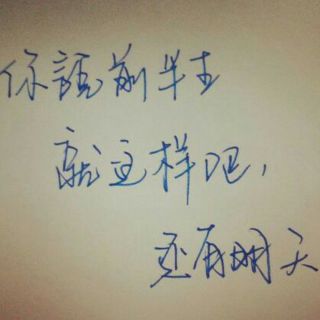 你話前半生
就这样吧，
还有明天